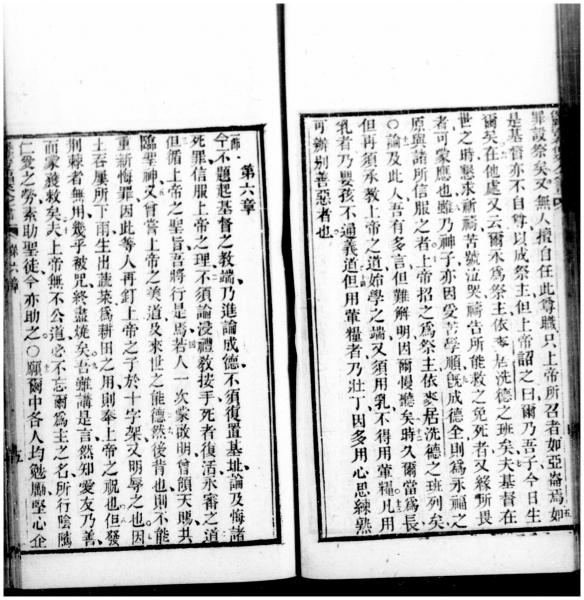 罪設祭矣又無人擅自任此尊職只上帝所召者如亞崙焉如
是基督亦不自尊以成祭主但上帝詔之曰爾乃吾子今日生
爾矣在他處又云爾永爲祭主依麥居洗德之班矣夫基督在
世之時懇求祈禱苦號泣哭禱告所能救之免死者又緣所畏
者可蒙應也雖乃神子亦因受苦學順旣成德全則爲永福之
原與諸所信服之者上帝招之爲祭主依麥居洗德之班列矣
○論及此人吾有多言但難解明因爾慢聽矣時久爾當爲長
但再須承教上帝之道始學之端又須用乳不得用葷糧凡用
乳者乃嬰孩不通義道但用葷糧者乃壯丁因多用心思練熟
可辨別善惡者也
第六章
一節今不題起基督之教端乃進論成德不須復置基址論及悔諸
死罪信服上帝之理不須論浸禮教按手死者復活永審之道
但循上帝之聖旨吾將行是焉若人一次蒙啟明曾領天賜共
臨聖神又曾嘗上帝之美道及來世之能德然後背也則不能
重新悔罪因此等人再釘上帝之子於十字架又明辱之也因
土吞屢所下雨生出蔬菜爲耕田之用則奉上帝之祝也但發
荊棘者無用幾乎被咒終盡燒矣吾雖講是言然知愛友乃善
而蒙獲救矣夫上帝無不公道必不忘爾爲主之名所行陰騭
仁愛之勞素助聖徒今亦助之○願爾中各人均勉勵堅心企